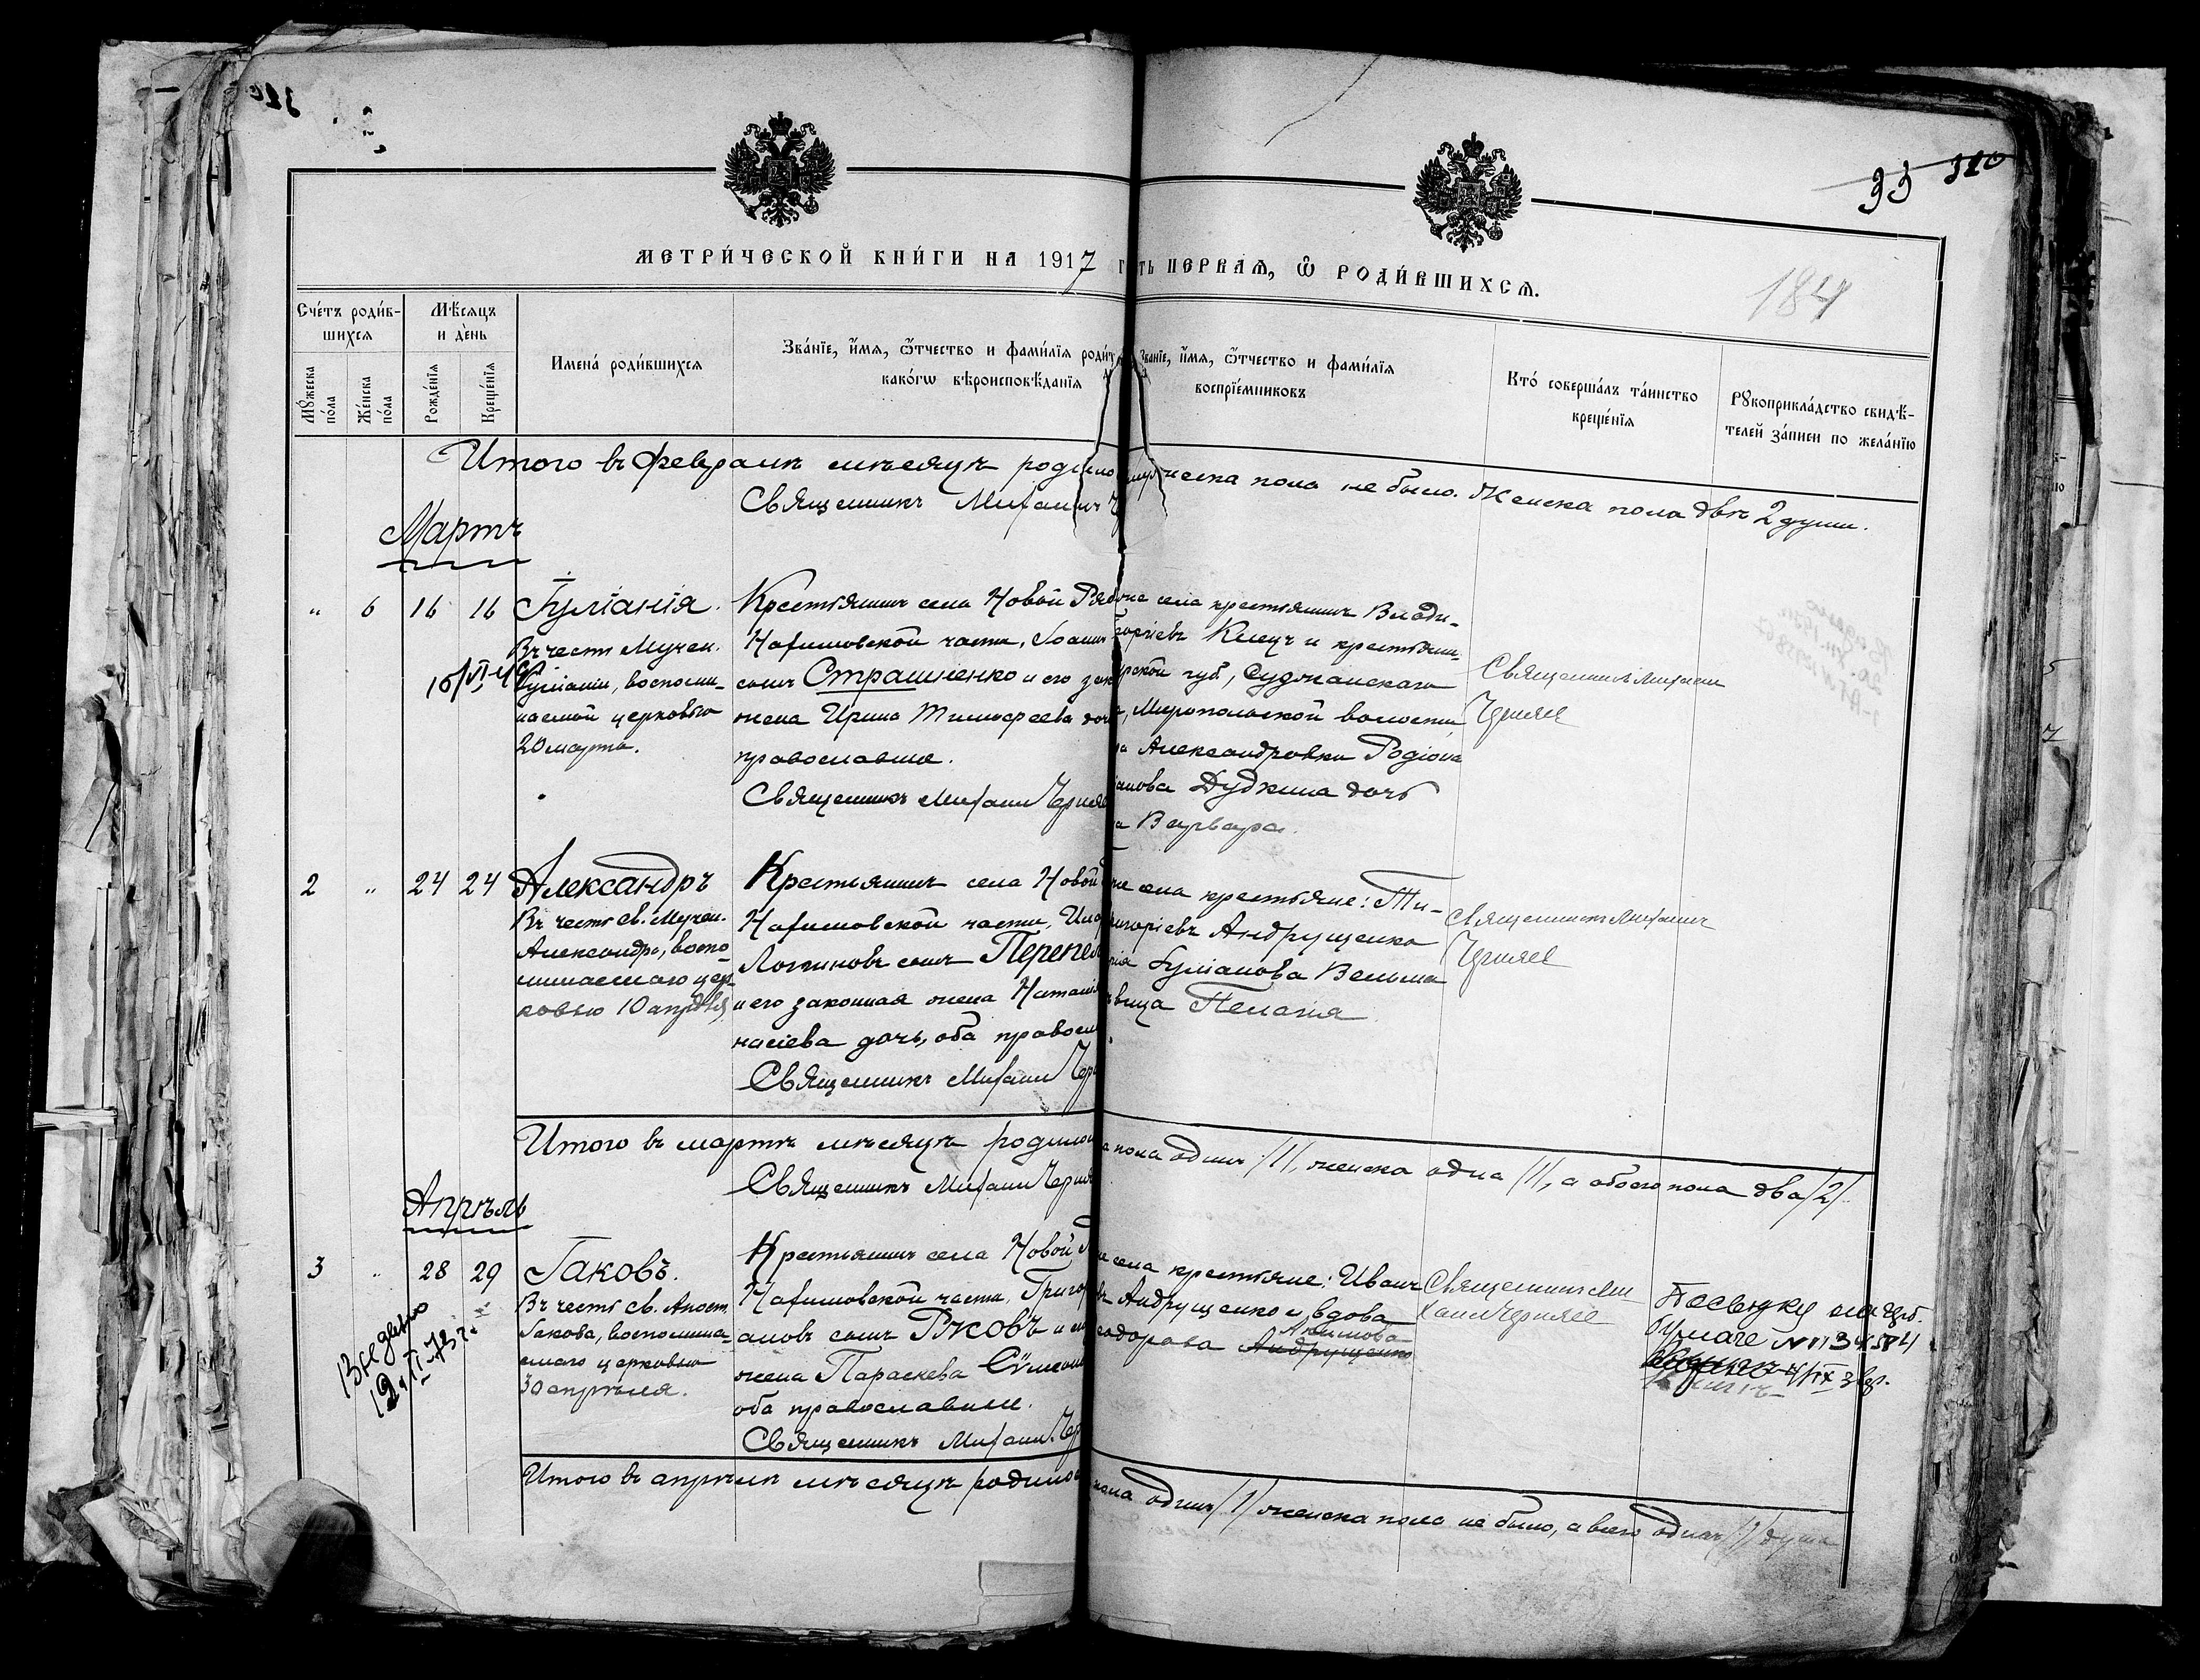 33 320
184
МЕТРИ́ЧЕСКОЙ КНИ́ГИ НА 1917 Г
ТЬ ПЕРВАѦ, Ѡ҃ РОДИ́ВШИХСѦ.
Сче́тъ роди́в-
шихсѧ
Мꙋ́жеска
по́ла
Же́нска
по́ла
Мѣ́сѧцъ
и де́нь
Рожде́нїѧ
Креще́нїѧ
Имена́ роди́вшихсѧ
Зва́нїе, и҆́мѧ, ѻ҆́тчество и фами́лїѧ роди́т
како́гѡ вѣроисповѣ́данїѧ
Зва́нїе, и҆́мѧ, ѻ҆́тчество и фами́лїѧ
воспрїе́мниковъ
Кто́ соверша́лъ та́инство
креще́нїѧ
Рꙋкоприкла́дство свидѣ́-
телей за́писи по жела́нїю
Итого въ февралѣ мѣсяцѣ родило
мужеска пола не было. Женска пола двѣ 2 души.
Священникъ Михаилъ Ч
Мартъ
„ 6 16 16
Іуліанія.
Въ честь Мучен.
Іуліаніи, воспоми-
наемой церковью
20 марта.
Крестьянинъ села Новой Ряб
Нафимовской части, Іоанн
сынъ Страшненко и его зак
жена Ирина Тимофеева доч
православные.
Священникъ Михаилъ Черняе
села крестьянинъ Влади-
горіевъ Клецъ и крестьян-
рской губ, Суджанскаго
Миропольской волости,
Александровки Родіона
анова Дудкина дочь
а Варвара.
Священникъ Михаилъ
Черняев
2 „ 24 24
Александръ
Въ честь св. Мучен.
Александра, воспо-
минаемаго цер-
ковью 10 апрѣля
Крестьянинъ села Новой
Нафимовской части,
Логиновъ сынъ Перепел
и его законная жена Наталія
насіева дочь, оба правосл
Священникъ Михаилъ Чер
села крестьяне: Ти-
игоріевъ Андрущенко
Іуліанова Вельма
вица Пелагія
Священникъ Михаилъ
Черняев
Итого въ мартѣ мѣсяцѣ родилос
а пола одинъ /1/, женска одна /1/, а обоего пола два /2/.
Священникъ Михаилъ Черня
Апрѣль
3 „ 28 29
Іаковъ.
Въ честь св. Апост.
Іакова, воспомина-
емаго церковью
30 апрѣля.
Крестьянинъ села Новой
Нафимовской части, Григор
ановъ сынъ Рѣковъ и
жена Параскева Сѵмеон
оба православные.
Священникъ Михаилъ Чер
села крестьяне: Иванъ
Андрущенко и вдова
Акимова
еодорова Андрущенко
Священникъ Ми-
хаилъ Черняев
Итого въ апрѣлѣ мѣсяцѣ родилос
пола одинъ /1/ женска пола не было, а всего одна /1/ душа